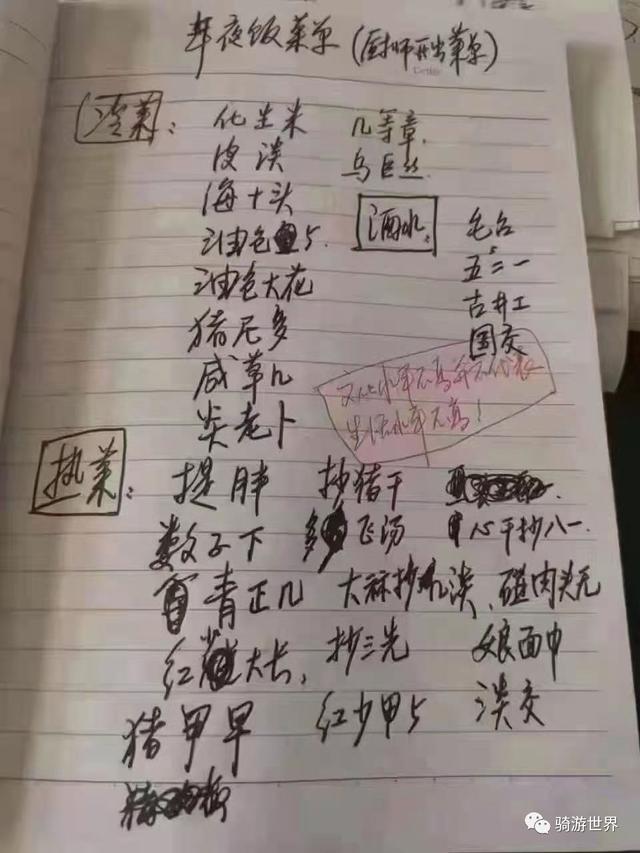 年夜饭菜单(厨师开出菜单)
冷菜:
化生米
皮淡
海十头
油色5.
油色大花
猪尼多
咸草几
炎老卜
几等章.
乌巨丝
酒水:
毛台
五二一
古井工
国交
文化水平不高并不代表
生活水平不高!
热菜:
提胖 抄猪干
数子下 飞汤 心干抄八一.
青正几 大麻抄几淡、碰肉头元
红大长, 抄三先 娘面巾
猪甲早 红少甲5 淡交
骑游世界